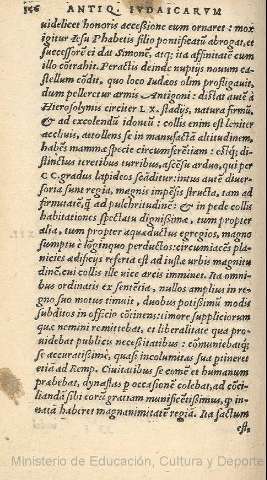 356 ANTIQ. IVDAICARVM
uidelicet honoris accessione eum ornaret: mox
igitur Iesu Phabetis filio pontificatũ abrogat, et
successorẽ ei dat Simonẽ, atq; ita affinitatẽ cum
illo cõtrahit. Peractis deinde nuptijs nouum ca-
stellum cõdit, quo loco Iudæos olim profligauit,
dum pelleretur armis Antigoni: distat autẽ à
Hierosolymis circiter L X. stadijs, natura firmũ,
& ad excolendũ idoneũ: collis enim est leniter
accliuis, attollens se in manufactã altitudinem,
habẽs mammæ specie circumferẽtiam: estq; di-
stinctus teretibus turribus, ascẽsu arduo, qui per
C C. gradus lapideos scãditur: intus autẽ diuer-
soria sunt regia, magnis impẽsis structa, tam ad
firmitatẽ, q̃ ad pulchritudinẽ: & in pede collis
habitationes spectatu dignissimæ, tum propter
alia, tum propter aquæductus egregios, magno
sumptu è lõginquo perductos: circumiacẽs pla-
nicies ædificijs referta est ad iustæ urbis magnitu
dinẽ, cui collis ille uice arcis imminet. Ita omni-
bus ordinatis ex sentẽtia, nullos amplius in re-
gno suo motus timuit, duobus potissimũ modis
subditos in officio cõtinens: timore suppliciorum
quæ nemini remittebat, et liberalitate qua pro-
uidebat publicis necessitatibus: cõmuniebatq;
se accuratissimè, quasi incolumitas sua ptineret
etiã ad Remp. Ciuitatibus se comẽ et humanum
præbebat, dynastas p occasionẽ colebat, ad cõci-
liandã sibi eorũ gratiam munificẽtissimus, q̃ in-
natã haberet magnanimitatẽ regiã. Ita factum
est,
Ministerio de Educación, Cultura y Deporte